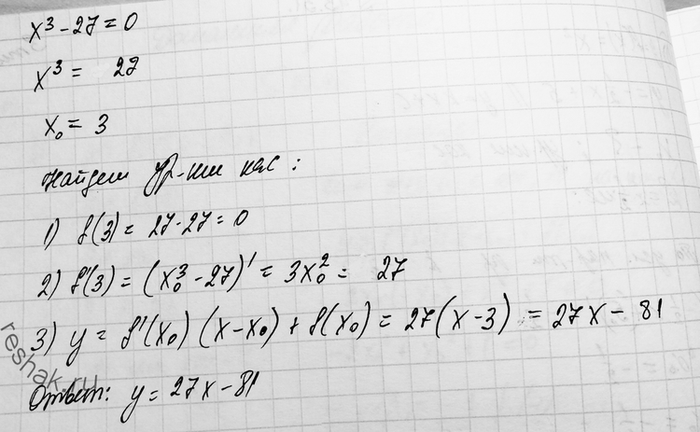 x³ - 27 = 0
x³ = 27
x₀ = 3
Найдем ур-ние кас:
1) f(3) = 27 - 27 = 0
2) f'(3) = (x₀³ - 27)' = 3x₀² = 27
3) y = f'(x₀)(x - x₀) + f(x₀) = 27(x - 3) = 27x - 81
Ответ: y = 27x - 81
reshak.ru